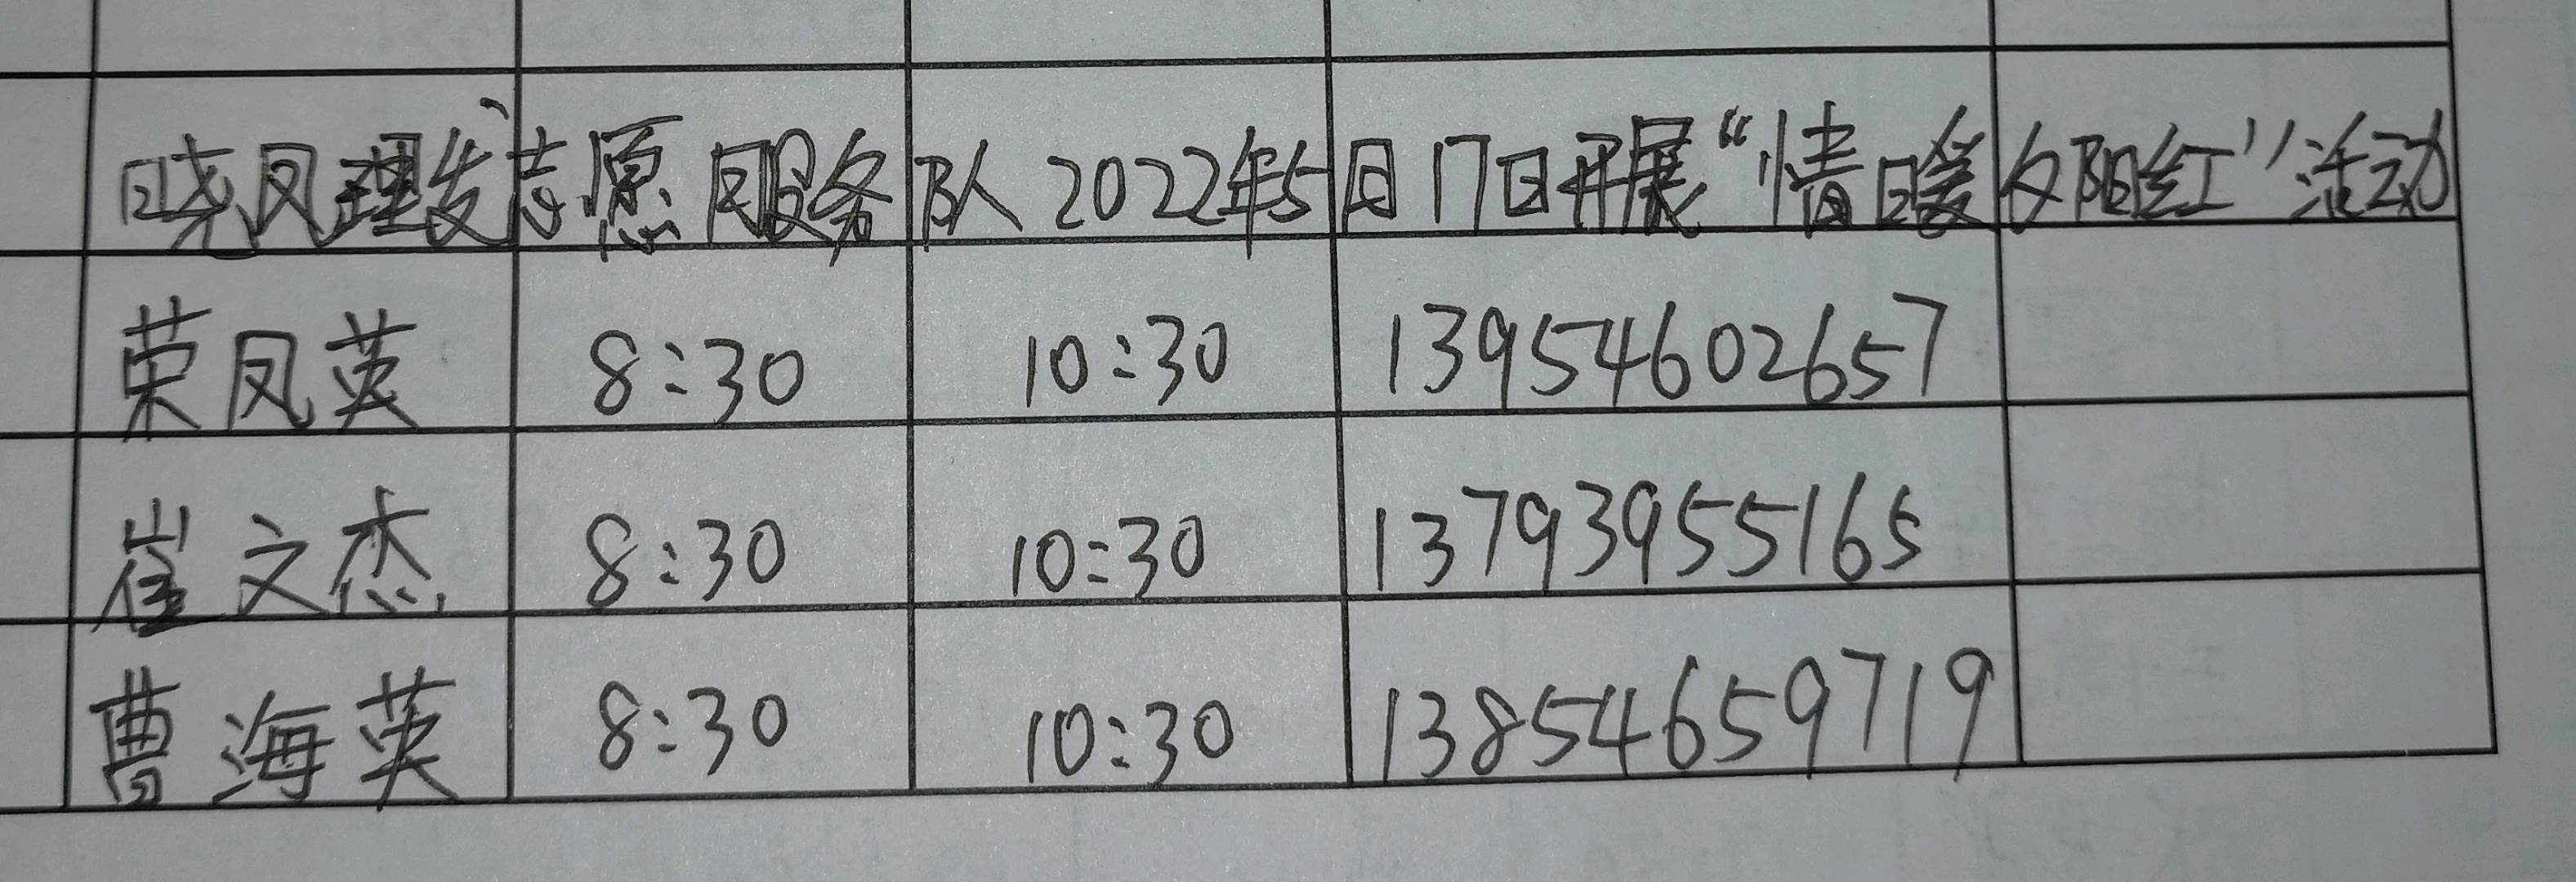 晓凤理发志愿服务队2022年5月17日开展“情暖夕阳红”活动
荣凤英 8:30 10:30 13954602657
崔文杰 8:30 10:30 13793955165
曹海英 8:30 10:30 13854659719